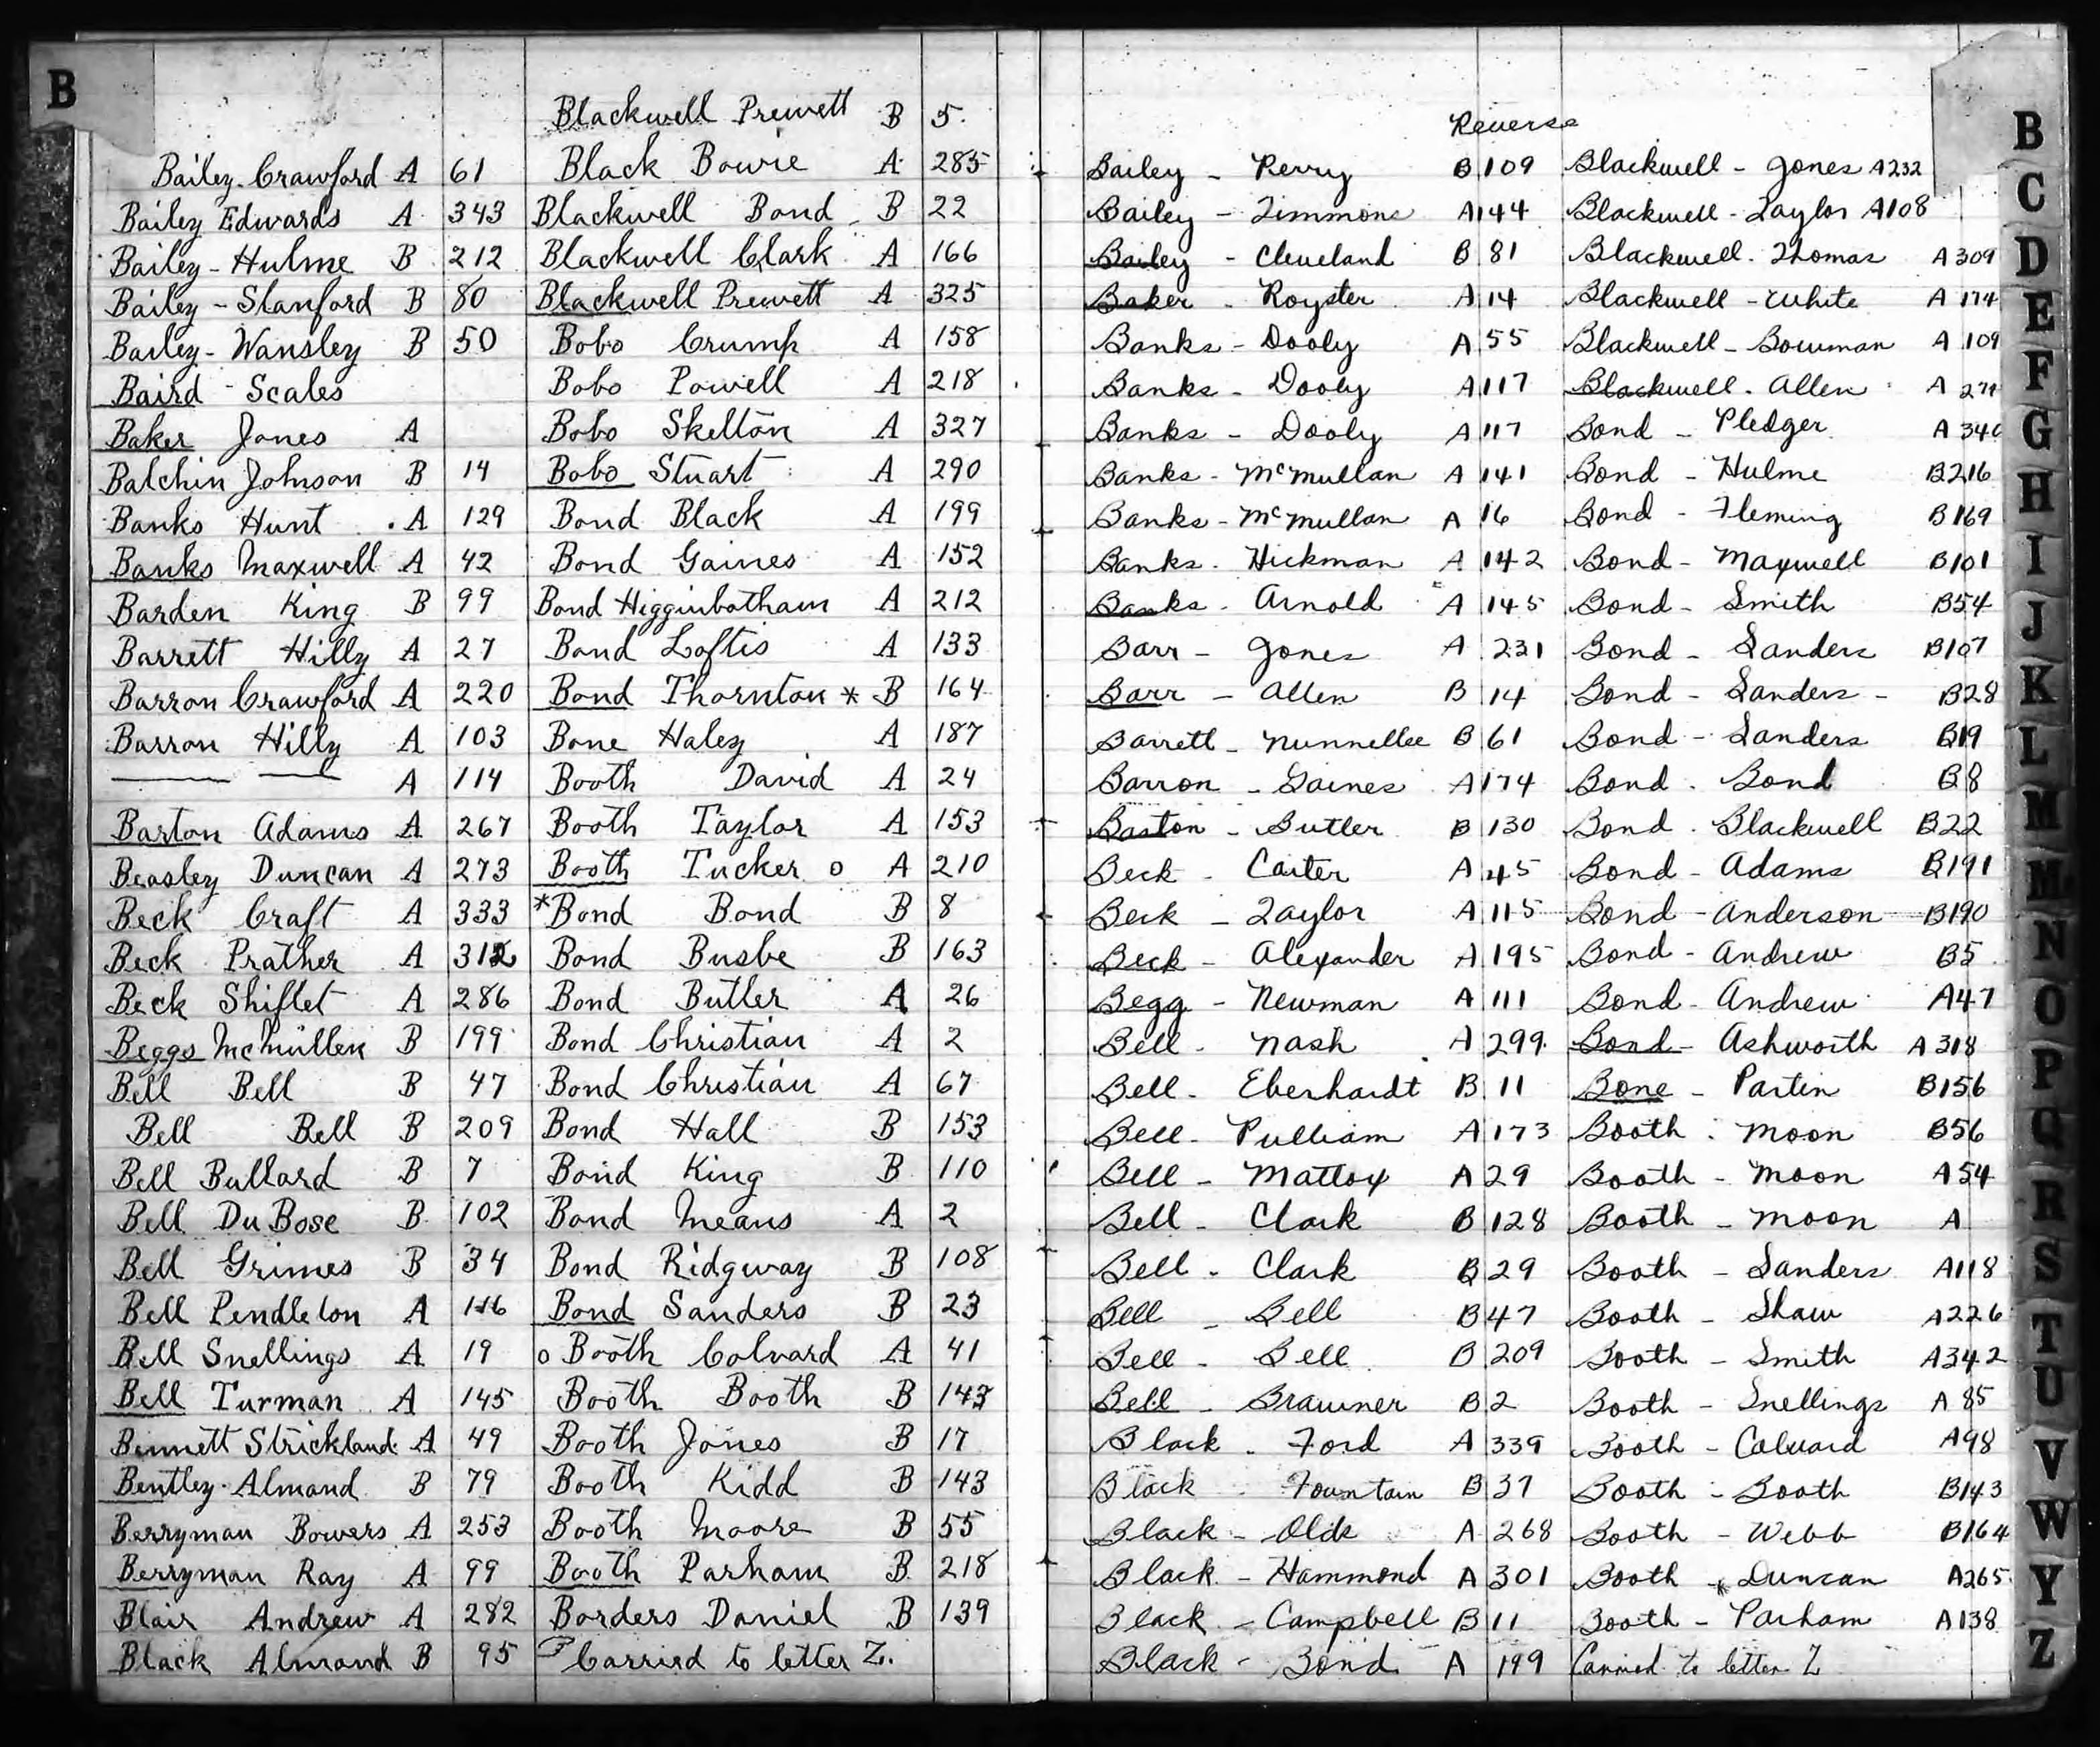 B
Blackwell Prewett B 5
Bailey-Crawford A 61
Bailey Edwards A 343
Bailey-Hulme B 212
Bailey-Stanford B 80
Bailey-Wansley B 50
Baird - Scales
Baker Jones A
Balchin Johnson B 14
Banks Hunt A 129
Banks Maxwell A 42
Barden King B 99
Barrett Hilly A 27
Barron Crawford A 220
Barron Hilly A 103
—— —— A 114
Barton Adams A 267
Beasley Duncan A 273
Beck Craft A 333
Beck Prather A 312
Beck Shiflet A 286
Beggs McMullen B 199
Bell Bell B 47
Bell Bell B 209
Bell Bullard B 7
Bell DuBose B 102
Bell Grimes B 34
Bell Pendleton A
Bell Snellings A 19
Bell Turman A 145
Bennett Strickland A 49
Bentley-Almand B 79
Berryman Bowers A 253
Berryman Ray A 99
Blair Andrew A 282
Black Almand B 95
Black Bowie A 285
Blackwell Bond B 22
Blackwell Clark A 166
Blackwell Prewett A 325
Bobo Crump A 158
Bobo Powell A 218
Bobo Skelton A 327
Bobo Stuart A 290
Bond Black A 199
Bond Gaines A 152
Bond Higginbotham A 212
Bond Loftis A 133
Bond Thornton * B 164
Bone Haley A 187
Booth David A 24
Booth Taylor A 153
Booth Tucker o A 210
*Bond Bond B 8
Bond Busbe B 163
Bond Butler A 26
Bond Christian A 2
Bond Christian A 67
Bond Hall B 153
Bond King B 110
Bond Means A 2
Bond Ridgway B 108
Bond Sanders B 23
o Booth Colvard A 41
Booth Booth B 143
Booth Jones B 17
Booth Kidd B 143
Booth Moore B 55
Booth Parham B 218
Borders Daniel B 139
Carried to letter Z.
Reverse
Bailey - Perry B 109
Bailey - Timmons A 144
Bailey - Cleveland B 81
Baker - Royster A 14
Banks - Dooly A 55
Banks - Dooly A 117
Banks - Dooly A 117
Banks - McMullan A 141
Banks - McMullan A 16
Banks - Hickman A 142
Banks - Arnold A 145
Barr - Jones A 231
Barr - Allen B 14
Barrett - Nunnellee B 61
Barron - Gaines A 174
Baston - Butler B 130
Beck - Carter A 45
Beck - Taylor A 115
Beck - Alexander A 195
Begg - Newman A 111
Bell - Nash A 299
Bell - Eberhardt B 11
Bell - Pulliam A 173
Bell - Mattox A 29
Bell - Clark B 128
Bell - Clark B 29
Bell - Bell B 47
Bell - Bell B 209
Bell - Brawner B 2
Black - Ford A 339
Black - Fountain B 37
Black - Olds A 268
Black - Hammond A 301
Black - Campbell B 11
Black - Bond A 199
Blackwell - Jones A 232
Blackwell - Taylor A 108
Blackwell - Thomas A 309
Blackwell - White A 174
Blackwell - Bowman A 109
Blackwell - Allen A
Bond - Pledger A 340
Bond - Hulme B 216
Bond - Fleming B 169
Bond - Maxwell B 101
Bond - Smith B 54
Bond - Sanders B 107
Bond - Sanders - B 28
Bond - Sanders B 19
Bond - Bond B 8
Bond - Blackwell B 22
Bond - Adams B 191
Bond - Anderson B 190
Bond - Andrew B 5
Bond - Andrew A 47
Bond - Ashworth A 318
Bone - Partin B 156
Booth - Moon B 56
Booth - Moon A 54
Booth - Moon A
Booth - Sanders A 118
Booth - Shaw A 226
Booth - Smith A 342
Booth - Snellings A 85
Booth - Calvard A 98
Booth - Booth B 143
Booth - Webb B 164
Booth - Duncan A 265
Booth - Parham A 138
Carried to letter Z
B
C
D
E
F
G
H
I
J
K
L
M
Mc
N
O
P
Q
R
S
T
U
V
W
Y
Z